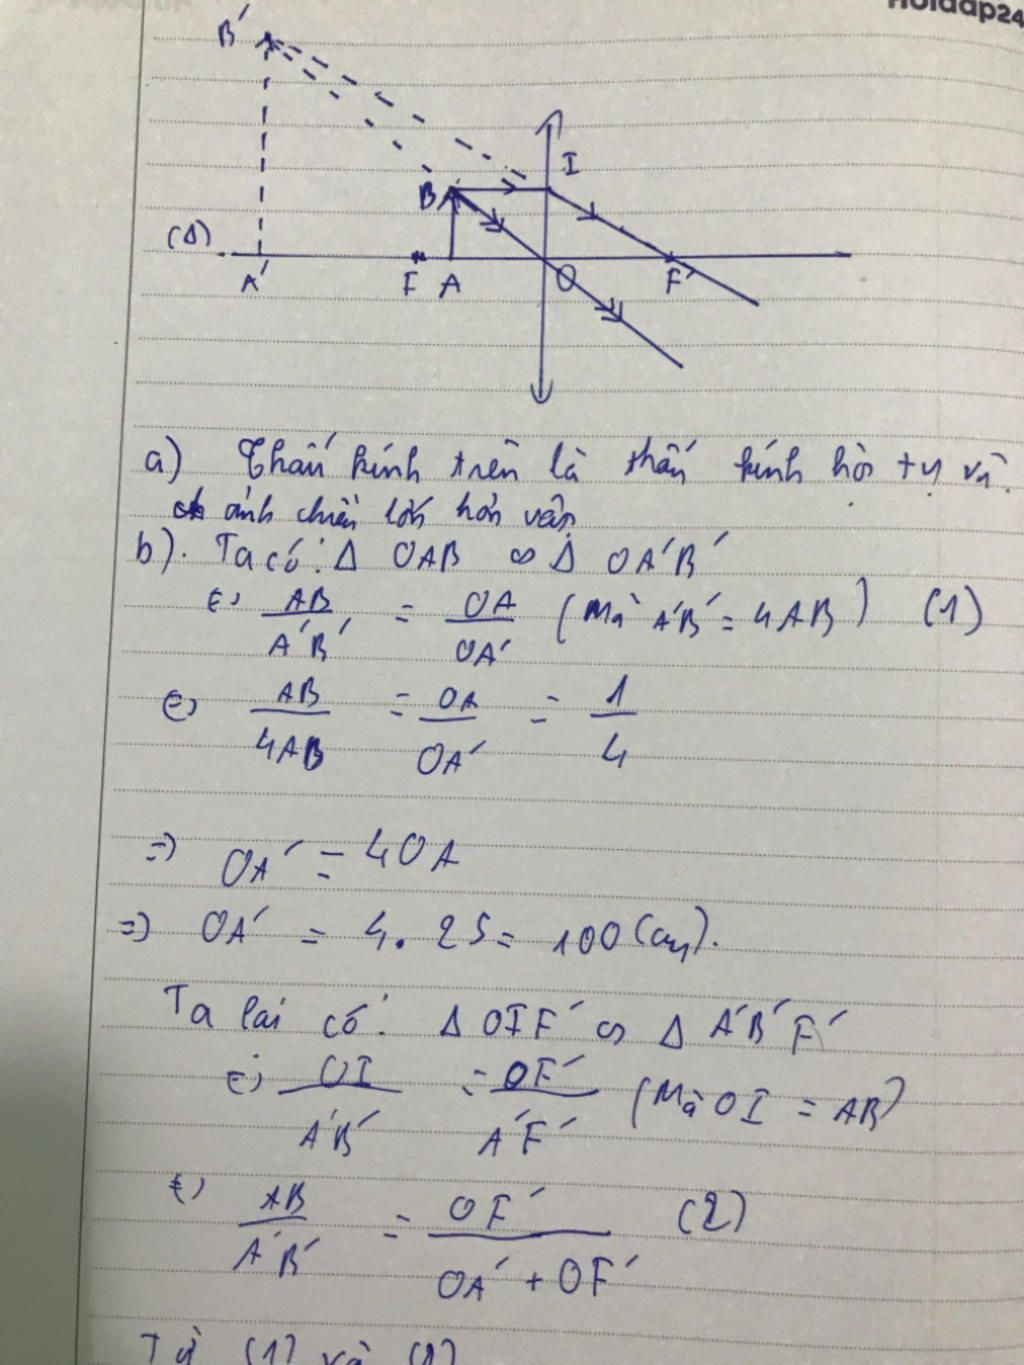 Hoidap24
B'
I
B
(Δ)
A' F A O F'
a) Thấu kính trên là thấu kính hội tụ vì
ảnh chiều lớn hơn vật
b). Ta có: Δ OAB ∞ Δ OA'B'
(=) AB/A'B' = OA/OA' (Mà A'B' = 4AB) (1)
(=) AB/4AB = OA/OA' = 1/4
=) OA' = 4OA
=) OA' = 4. 25 = 100 (cm).
Ta lại có: Δ OIF' ∞ Δ A'B'F'
(=) OI/A'B' = OF'/A'F' (Mà OI = AB)
(=) AB/A'B' = OF'/OA' + OF' (2)
Từ (1) và (2)